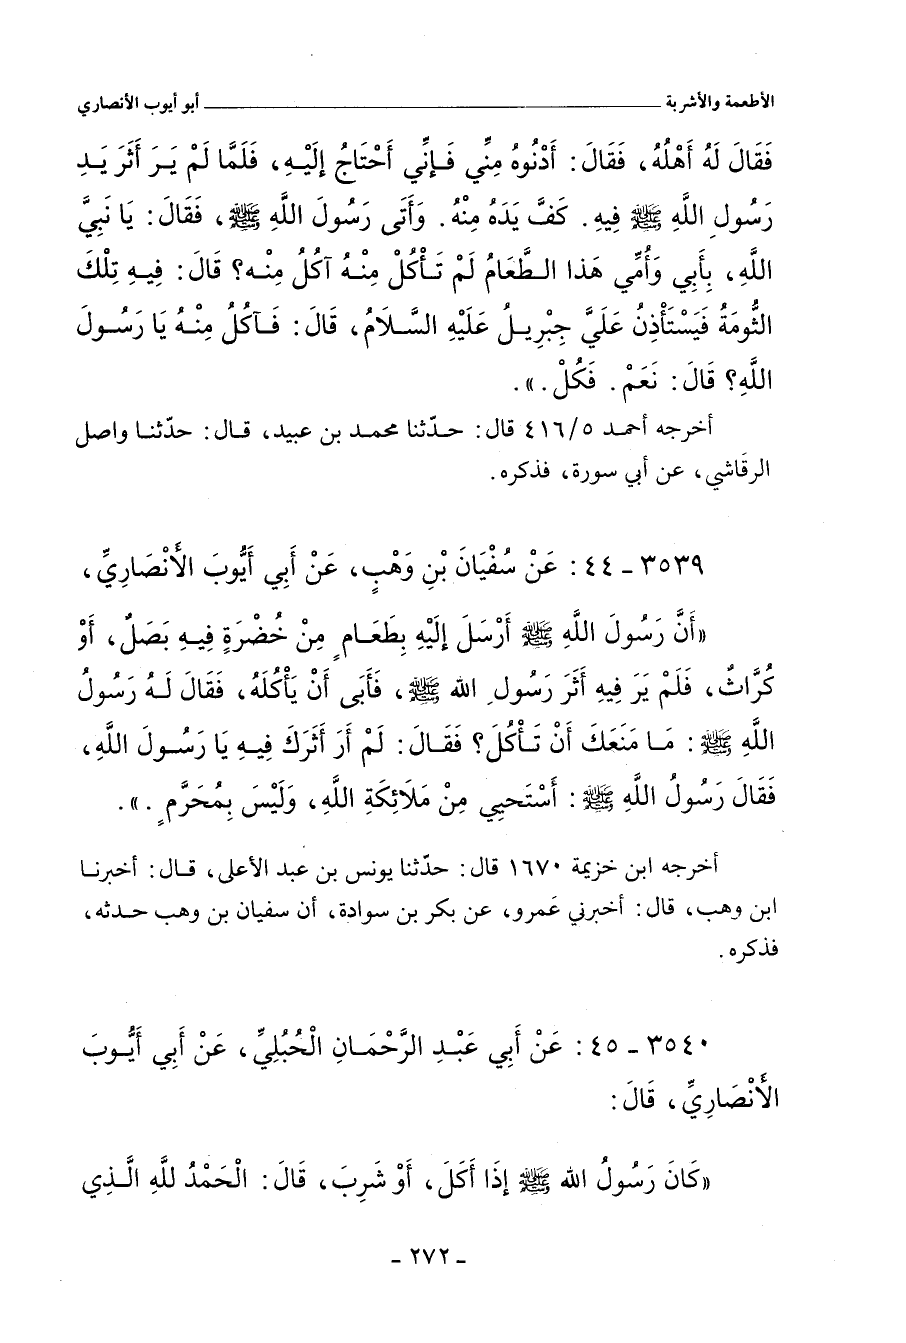 الأطعمة والأشربة ــــــــــــــــــــ أبو أيوب الأنصاري
فَقَالَ لَهُ أَهْلُهُ، فَقَالَ: أَدْنُوهُ مِنِّي فَإِنِّي أَحْتَاجُ إِلَيْهِ، فَلَمَّا لَمْ يَرَ أَثَرَ يَدِ
رَسُولِ اللَّهِ ﷺ فِيهِ. كَفَّ يَدَهُ مِنْهُ. وَأَتَى رَسُولَ اللَّهِ ﷺ، فَقَالَ: يَا نَبِيَّ
اللَّهِ، بِأَبِي وَأُمِّي هَذَا الطَّعَامُ لَمْ تَأْكُلْ مِنْهُ آكُلُ مِنْه؟ قَالَ: فِيهِ تِلْكَ
الثُّومَةُ فَيَسْتَأْذِنُ عَلَيَّ جِبْرِيلُ عَلَيْهِ السَّلَامُ، قَالَ: فَآكُلُ مِنْهُ يَا رَسُولَ
اللَّهِ؟ قَالَ: نَعَمْ. فَكُلْ.».
أخرجه أحمد ٥/٤١٦ قال: حدّثنا محمد بن عبيد، قال: حدّثنا واصل
الرقَاشي، عن أبي سورة، فذكره.
٣٥٣٩ - ٤٤: عَنْ سُفْيَانَ بْنِ وَهْبٍ، عَنْ أَبِي أَيُّوبَ الأَنْصَارِيِّ،
«أَنَّ رَسُولَ اللَّهِ ﷺ أَرْسَلَ إِلَيْهِ بِطَعَامٍ مِنْ خُضْرَةٍ فِيهِ بَصَلٌ، أَوْ
كُرَّاثٌ، فَلَمْ يَرَ فِيهِ أَثَرَ رَسُولِ الله ﷺ، فَأَبَى أَنْ يَأْكُلَهُ، فَقَالَ لَهُ رَسُولُ
اللَّهِ ﷺ: مَا مَنَعَكَ أَنْ تَأْكُلَ؟ فَقَالَ: لَمْ أَرَ أَثَرَكَ فِيهِ يَا رَسُولَ اللَّهِ،
فَقَالَ رَسُولُ اللَّهِ ﷺ: أَسْتَحْيِي مِنْ مَلَائِكَةِ اللَّهِ، وَلَيْسَ بِمُحَرَّمٍ.».
أخرجه ابن خزيمة ١٦٧٠ قال: حدّثنا يونس بن عبد الأعلى، قال: أخبرنا
ابن وهب، قال: أخبرني عَمرو، عن بكر بن سوادة، أن سفيان بن وهب حدثه،
فذكره.
٣٥٤٠ - ٤٥: عَنْ أَبِي عَبْدِ الرَّحْمَانِ الْحُبُلِيِّ، عَنْ أَبِي أَيُّوبَ
الأَنْصَارِيِّ، قَالَ:
«كَانَ رَسُولُ الله ﷺ إِذَا أَكَلَ، أَوْ شَرِبَ، قَالَ: الْحَمْدُ للَّهِ الَّذِي
- ٢٧٢ -